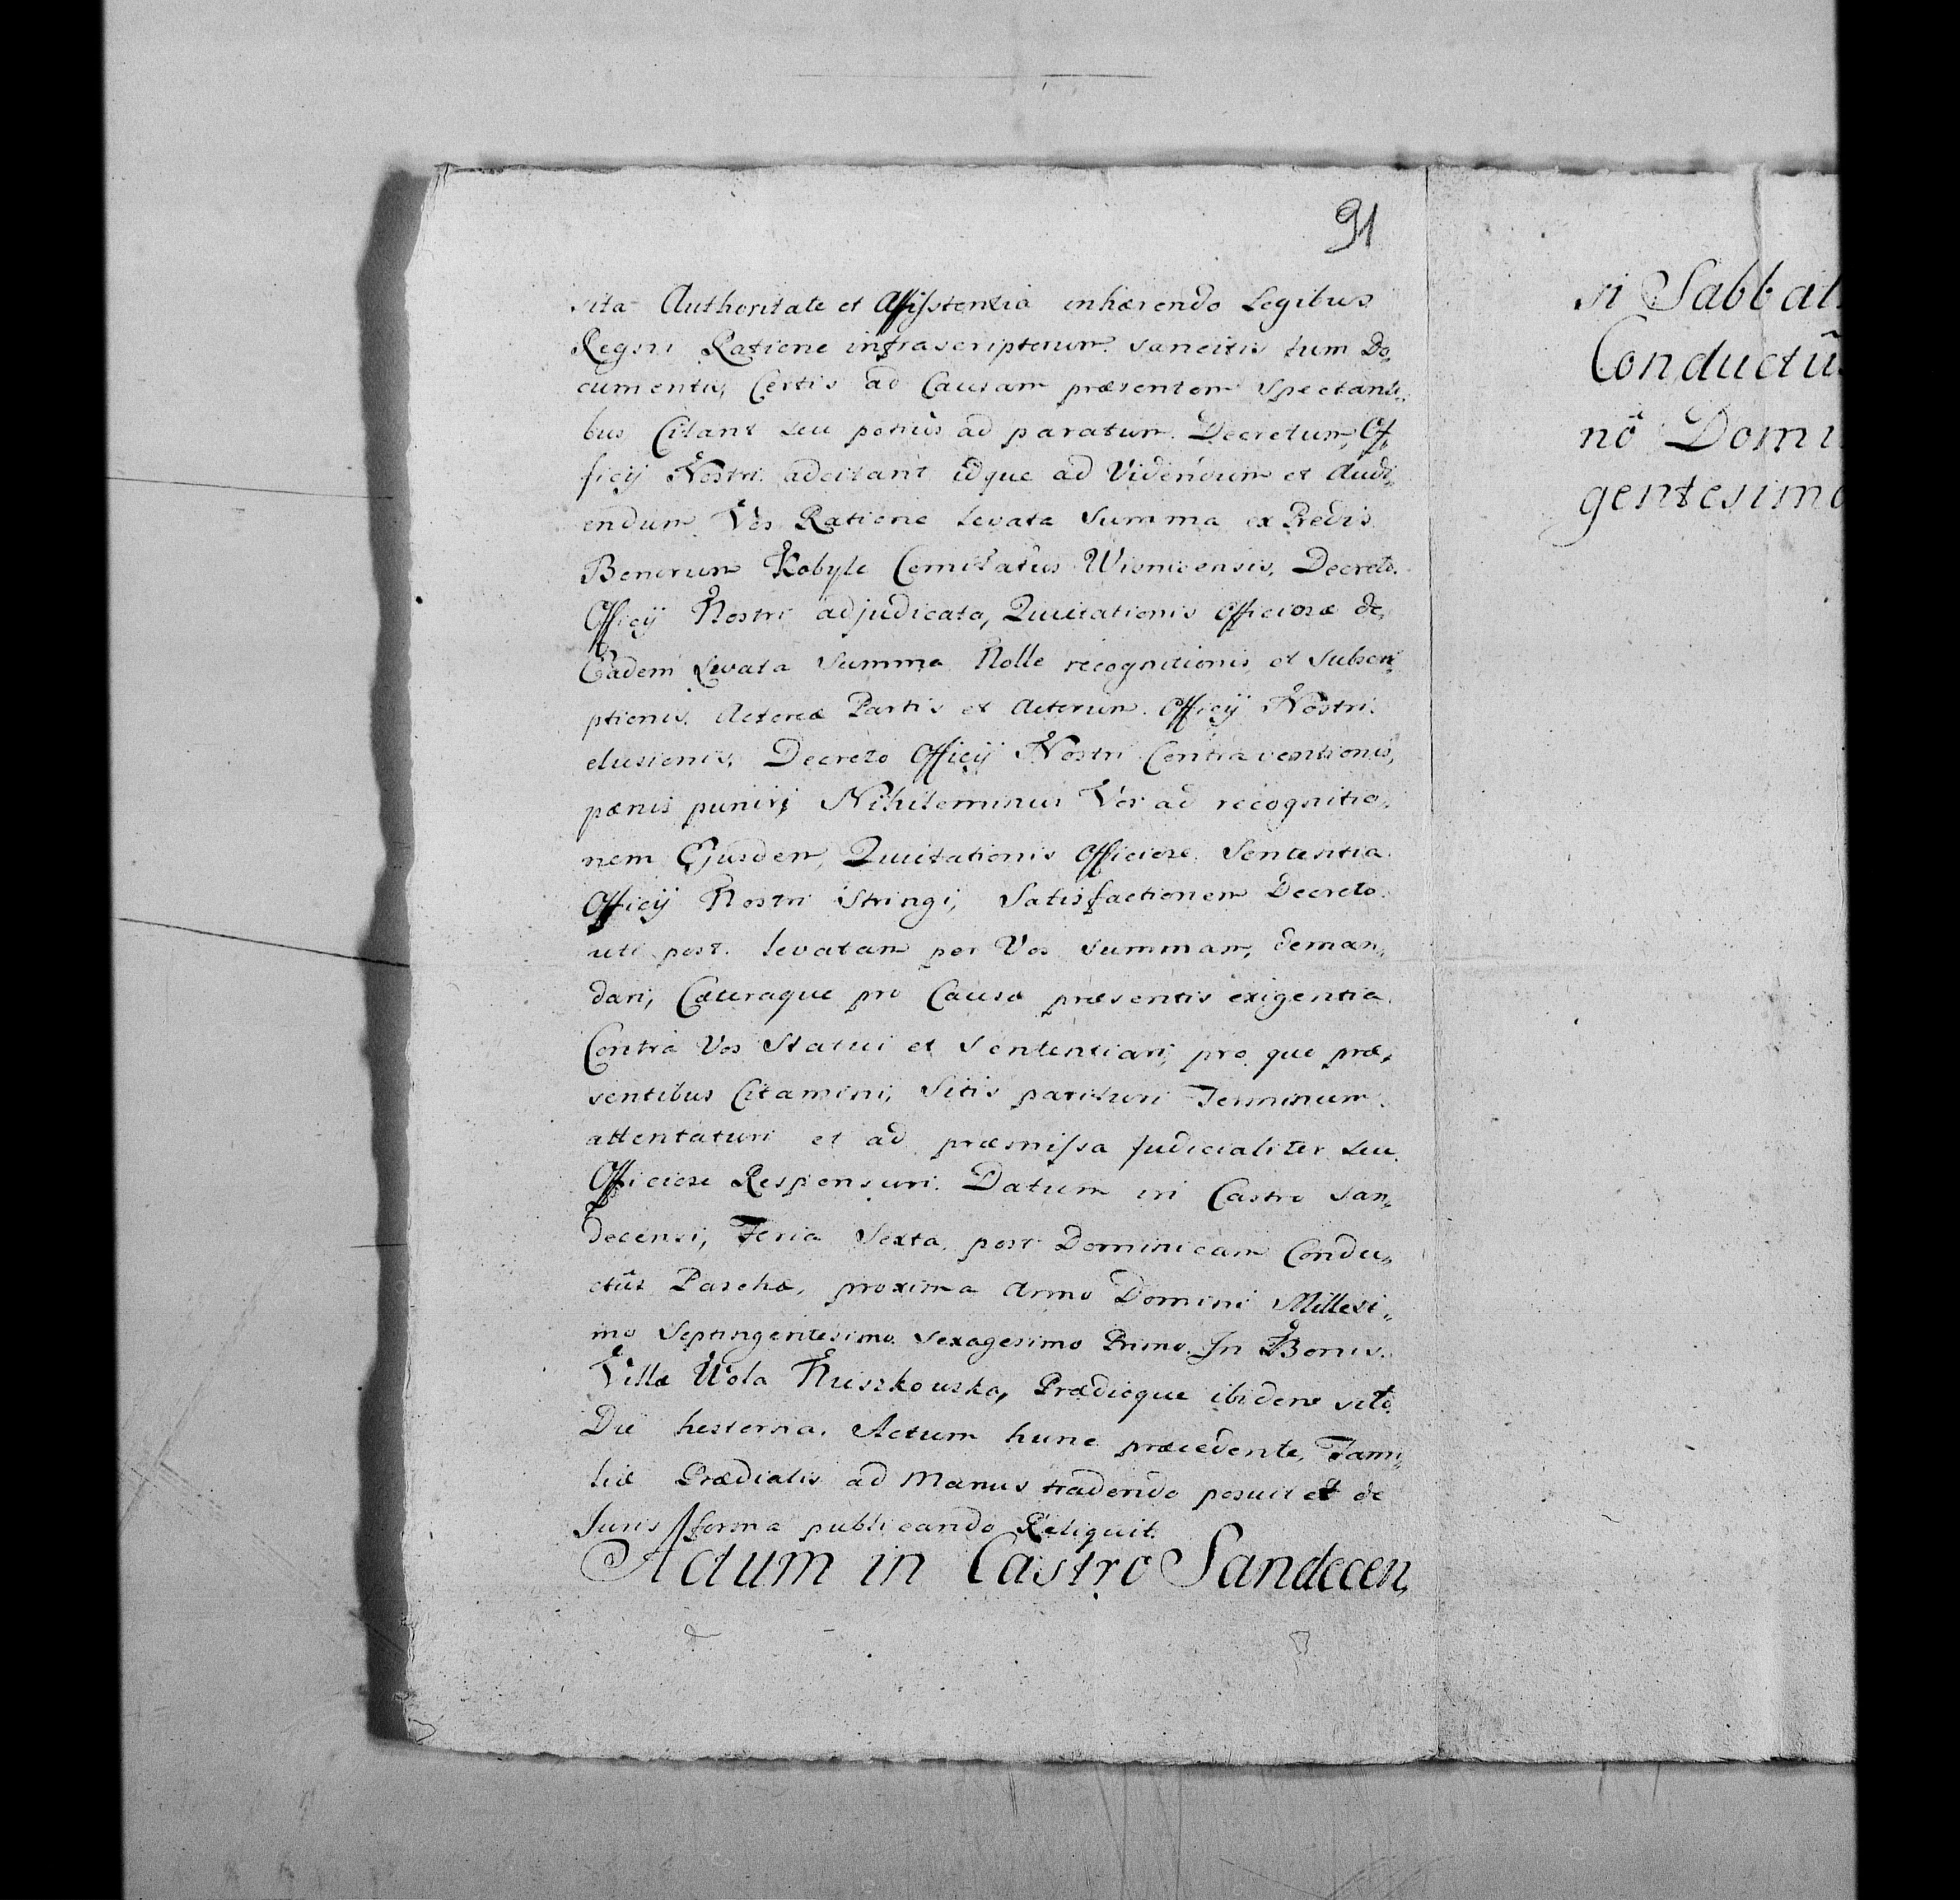 91
sita Authoritate et Assistentia inhærendo Legibus
Regni Ratione infrascriptorum sancitis tum Do„
cumentis, Certis ad Causam præsentem Spectanti„
bus Citant seu potius ad paratum Decretum, Of„
ficij Nostri adcitant idque ad Videndum et Audi„
endum Vos Ratione Levata Summa ex Prædis
Bonorum Kobyle Comitatus Wisnicensis, Decreto
Officij Nostri adjudicata, Quietationis Officiosæ de
Eadem Levata Summa Nolle recognitionis et Subscri„
ptionis, Actoreæ Partis et Actorum Officij Nostri
elusionis, Decreto Officij Nostri Contraventionis,
pænis puniri, Nihilominus Vos ad recognitio„
nem Ejusdem, Quietationis Officiose Sententia
Officij Nostri Stringi, Satisfactionem Decreto
uti post Levatam per Vos Summam, deman„
dari, Cæteraque pro Causæ præsentis exigentia
Contra Vos Statui et Sententiari, pro que præ„
sentibus Citamini, Sitis parituri Terminum
attentaturi et ad præmissa Judicialiter seu
Officiose Responsuri. Datum in Castro San„
decensi, Feria Sexta post Dominicam Condu„
ctûs Paschæ, proxima Anno Domini Millesi„
mo Septingentesimo Sexagesimo Primo. In Bonis
Villæ Wola Kuszkowska, Prædioque ibidem sito
Die hesterna, Actum hunc præcedente, Fami„
liæ Prædialis ad Manus tradendo posuit et de
Juris forma publicando Reliquit.
Actum in Castro Sandecen„
si Sabbat
Conductû
nô Domi
gentesimo